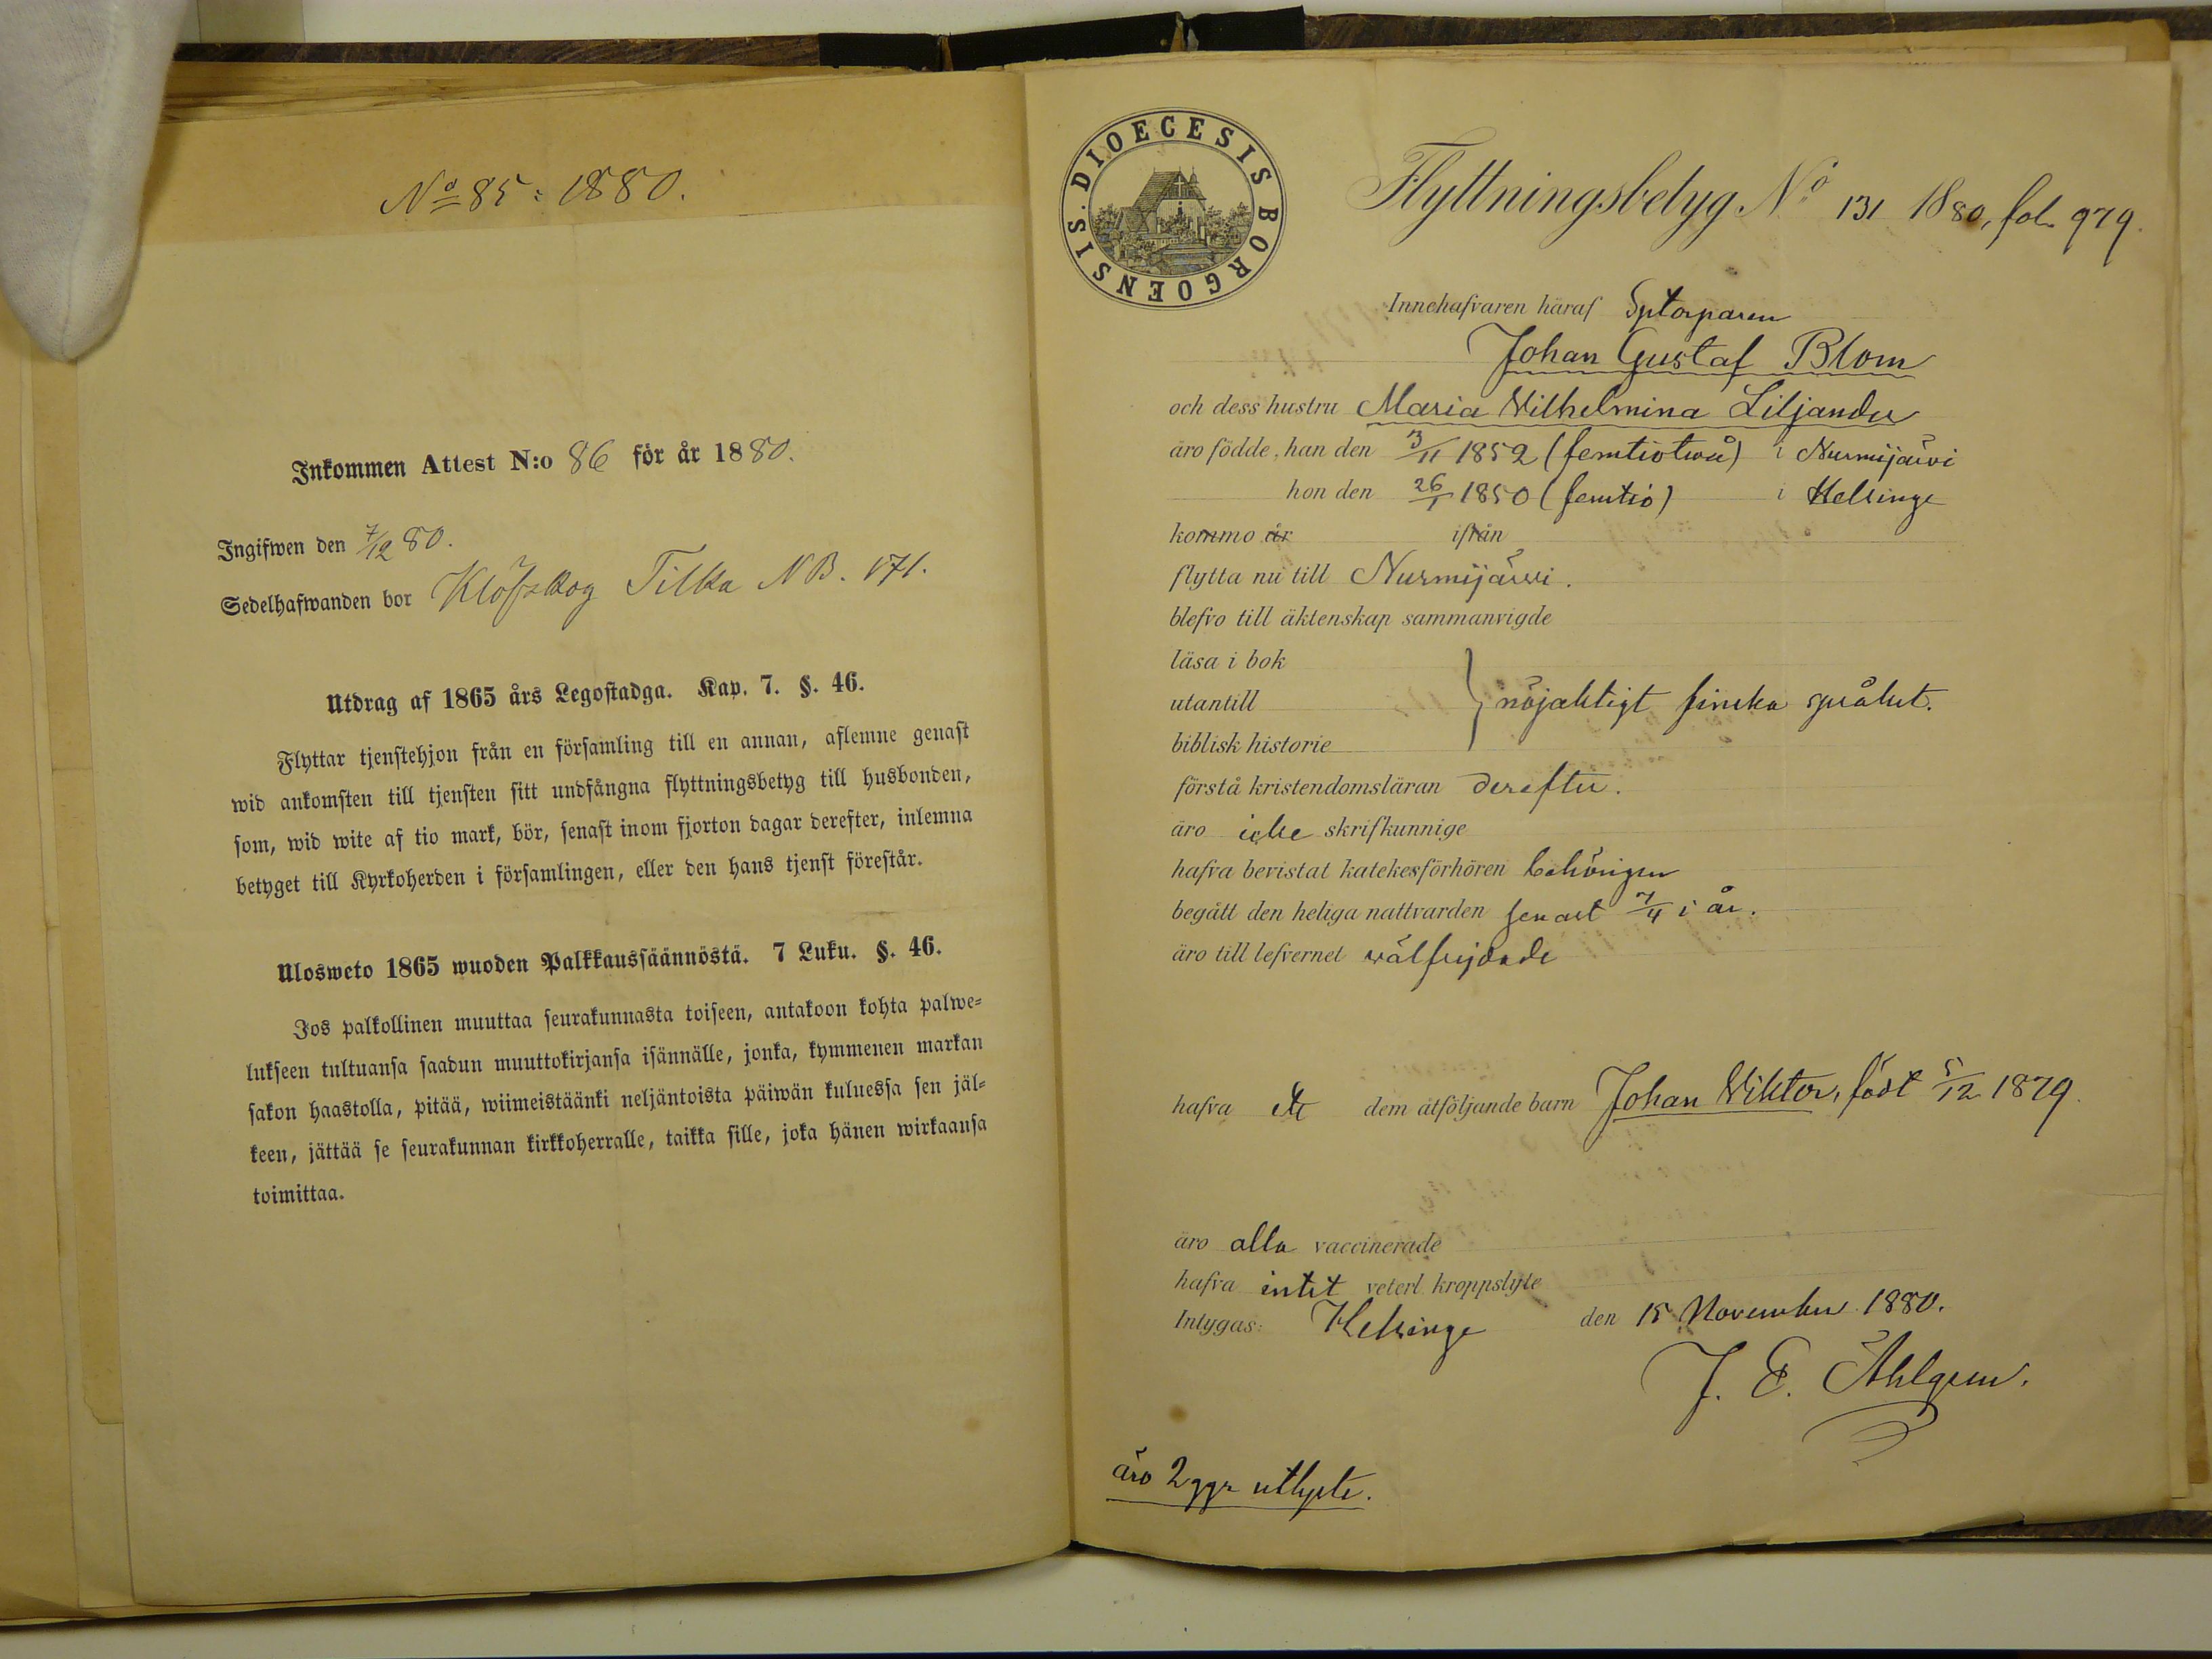 No 85: 1880.
Inkommen Attest N:o 86 för år 1880.
Ingifwen den 7/12 80.
Sedelhafwanden bor Klöfskog Tilka NB. 171.
Utdrag af 1865 års Legostadga. Kap. 7. §. 46.
Flyttar tjenstehjon från en församling till en annan, aflemne genast
wid ankomsten till tjensten sitt undfångna flyttningsbetyg till husbonden,
som, wid wite af tio mark, bör, senast inom fjorton dagar derefter, inlemna
betyget till Kyrkoherden i församlingen, eller den hans tjenst förestår.
Ulosweto 1865 wuoden Palkkaussäännöstä. 7 Luku. §. 46.
Jos palkollinen muuttaa seurakunnasta toiseen, antakoon kohta palwe-
lukseen tultuansa saadun muuttokirjansa isännälle, jonka, kymmenen markan
sakon haastolla, pitää, wiimeistäänki neljäntoista päiwän kuluessa sen jäl-
keen, jättää se seurakunnan kirkkoherralle, taikka sille, joka hänen wirkaansa
toimittaa.
DIOECESIS BORGOENSIS.
Flyttningsbetyg No 131 1880, fol. 979.
Innehafvaren häraf Sptorparen
Johan Gustaf Blom
och dess hustru Maria Wilhelmina Liljander
äro födde, han den 13/11 1852 (femtiotwå) i Nurmijärvi
hon den 26/1 1850 (femtio) i Helsinge
kommo år ifrån
flytta nu till Nurmijärvi.
blefvo till äktenskap sammanvigde
läsa i bok
utantill } nöjaktigt finska språket.
biblisk historie
förstå kristendomsläran derefter.
äro icke skrifkunnige
hafva bevistat katekesförhören behörigen
begått den heliga nattvarden senast 7/4 i år.
äro till lefvernet wälfrejdade
hafva ett dem åtföljande barn Johan Wiktor, född 5/12 1879.
äro alla vaccinerade
hafva intet veterl. kroppslyte
Intygas: Helsinge den 15 November 1880.
J. E. Åhlgren.
äro 2 ggr utlyste.